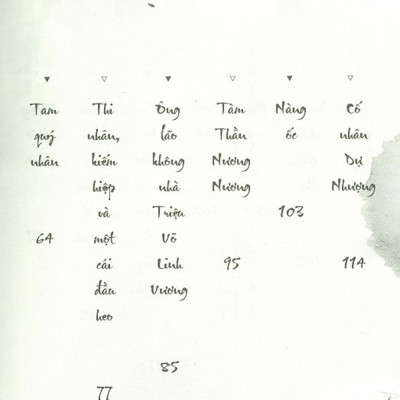 Tam
quý
nhân
64
Thi
nhân,
kiếm
hiệp
và
một
cái
đầu
heo
77
Ông
lão
không
nhà
Triệu
Võ
Linh
Vương
85
Tàm
Thần
Nương
Nương
95
Nàng
ốc
103
Cố
nhân
Dự
Nhượng
114